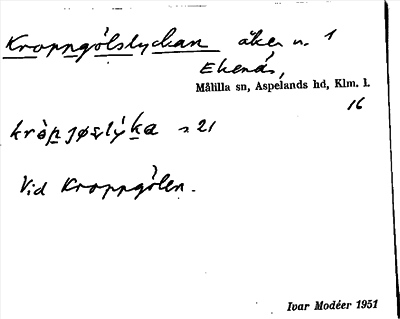 Kroppgölslyckan åker n. 1
Ekenäs,
Målilla sn, Aspelands hd, Klm. l.
16
Vid Kroppgölen.
Ivar Modéer 1951